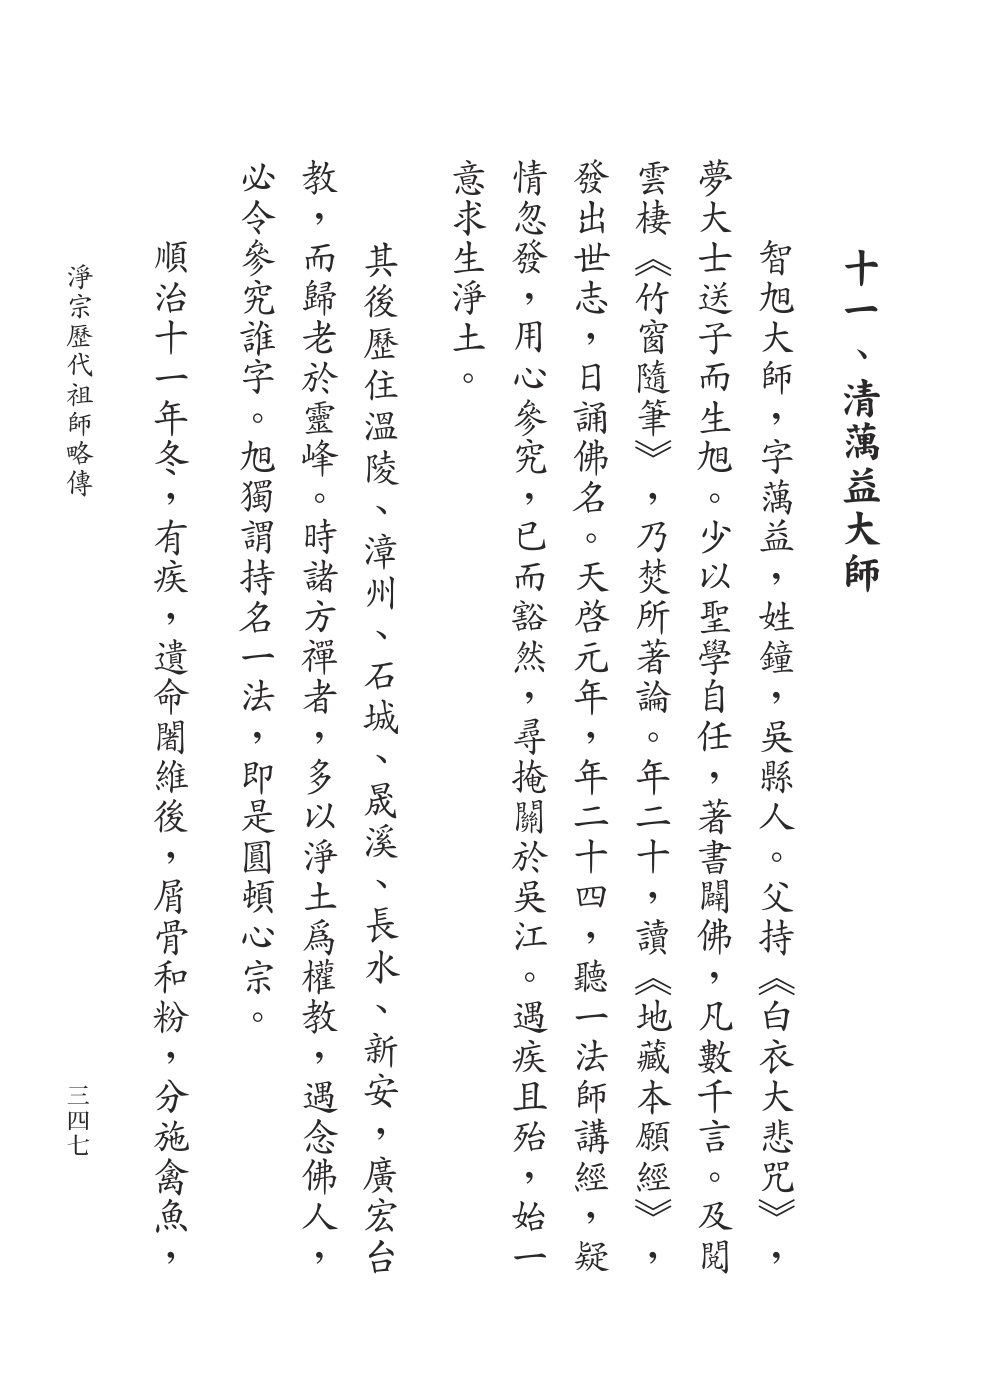 十一、清蕅益大師
智旭大師，字蕅益，姓鐘，吳縣人。父持《白衣大悲咒》，
夢大士送子而生旭。少以聖學自任，著書闢佛，凡數千言。及閱
雲棲《竹窗隨筆》，乃焚所著論。年二十，讀《地藏本願經》，
發出世志，日誦佛名。天啓元年，年二十四，聽一法師講經，疑
情忽發，用心參究，已而豁然，尋掩關於吳江。遇疾且殆，始一
意求生淨土。
其後歷住溫陵、漳州、石城、晟溪、長水、新安，廣宏台
教，而歸老於靈峰。時諸方禪者，多以淨土爲權教，遇念佛人，
必令參究誰字。旭獨謂持名一法，即是圓頓心宗。
順治十一年冬，有疾，遺命闍維後，屑骨和粉，分施禽魚，
淨宗歷代祖師略傳
三四七